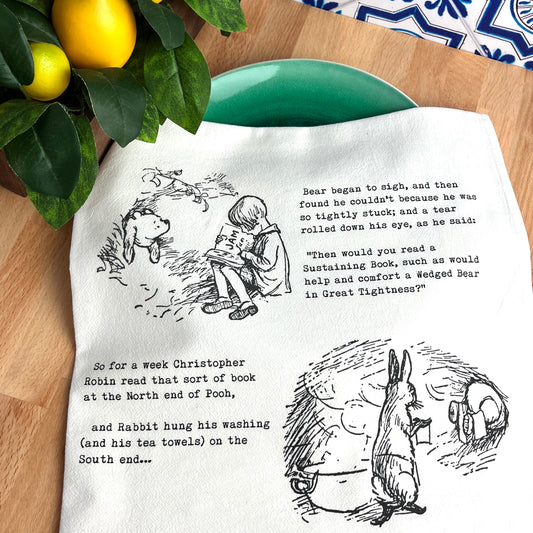 Bear began to sigh, and then
found he couldn't because he was
so tightly stuck; and a tear
rolled down his eye, as he said:
"Then would you read a
Sustaining Book, such as would
help and comfort a Wedged Bear
in Great Tightness?"
JAM
So for a week Christopher
Robin read that sort of book
at the North end of Pooh,
and Rabbit hung his washing
(and his tea towels) on the
South end...